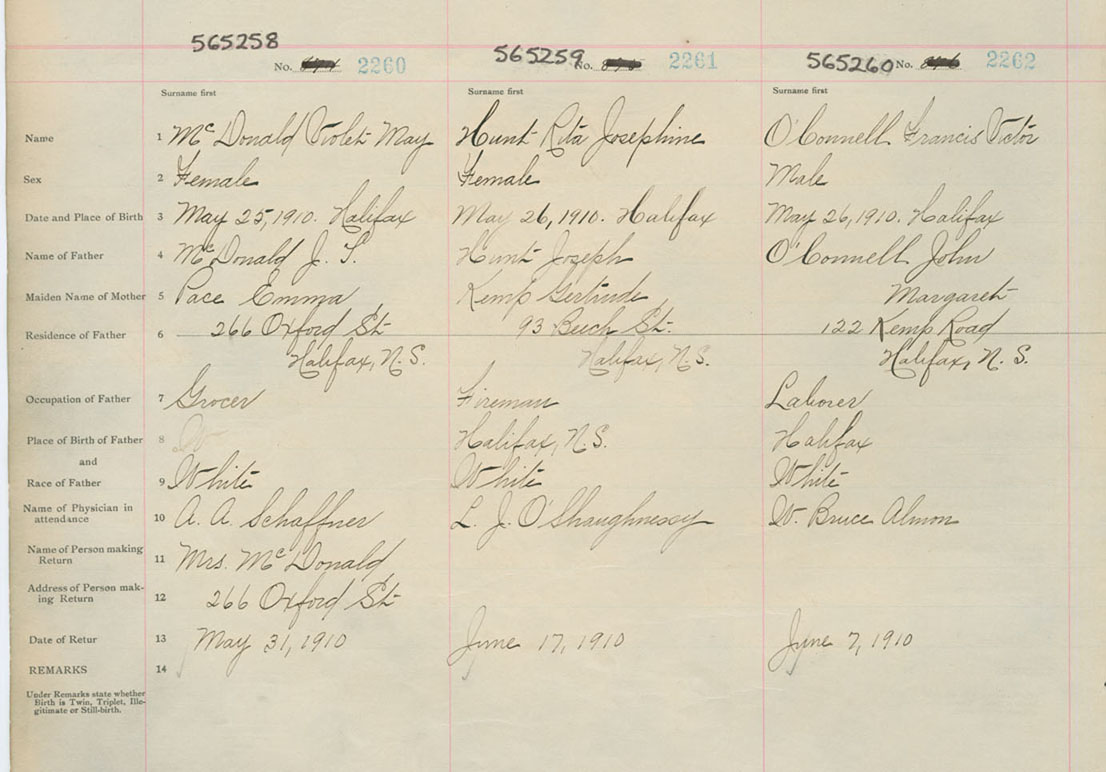 565258 565259 565260
No. 2260 No. 2261 No. 2262
Surname first Surname first Surname first
Name 1 Mc Donald Violet May Hunt Rita Josephine O'Connell Francis Victor
Sex 2 Female Female Male
Date and Place of Birth 3 May 25, 1910. Halifax May 26, 1910. Halifax May 26, 1910. Halifax
Name of Father 4 Mc Donald J. S. Hunt Joseph O'Connell John
Maiden Name of Mother 5 Pace Emma Kemp Gertrude Margaret
Residence of Father 6 266 Oxford St- 93 Beech St- 122 Kemp Road
Halifax, N.S. Halifax, N.S. Halifax, N.S.
Occupation of Father 7 Grocer Fireman Laborer
Place of Birth of Father 8 Halifax, N.S. Halifax
and
Race of Father 9 White White White
Name of Physician in
attendance 10 A. A. Schaffner L. J. O'Shaughnessy W. Bruce Almon
Name of Person making
Return 11 Mrs. Mc Donald
Address of Person mak-
ing Return 12 266 Oxford St-
Date of Retur 13 May 31, 1910 June 17, 1910 June 7, 1910
REMARKS 14
Under Remarks state whether
Birth is Twin, Triplet, Ille-
gitimate or Still-birth.